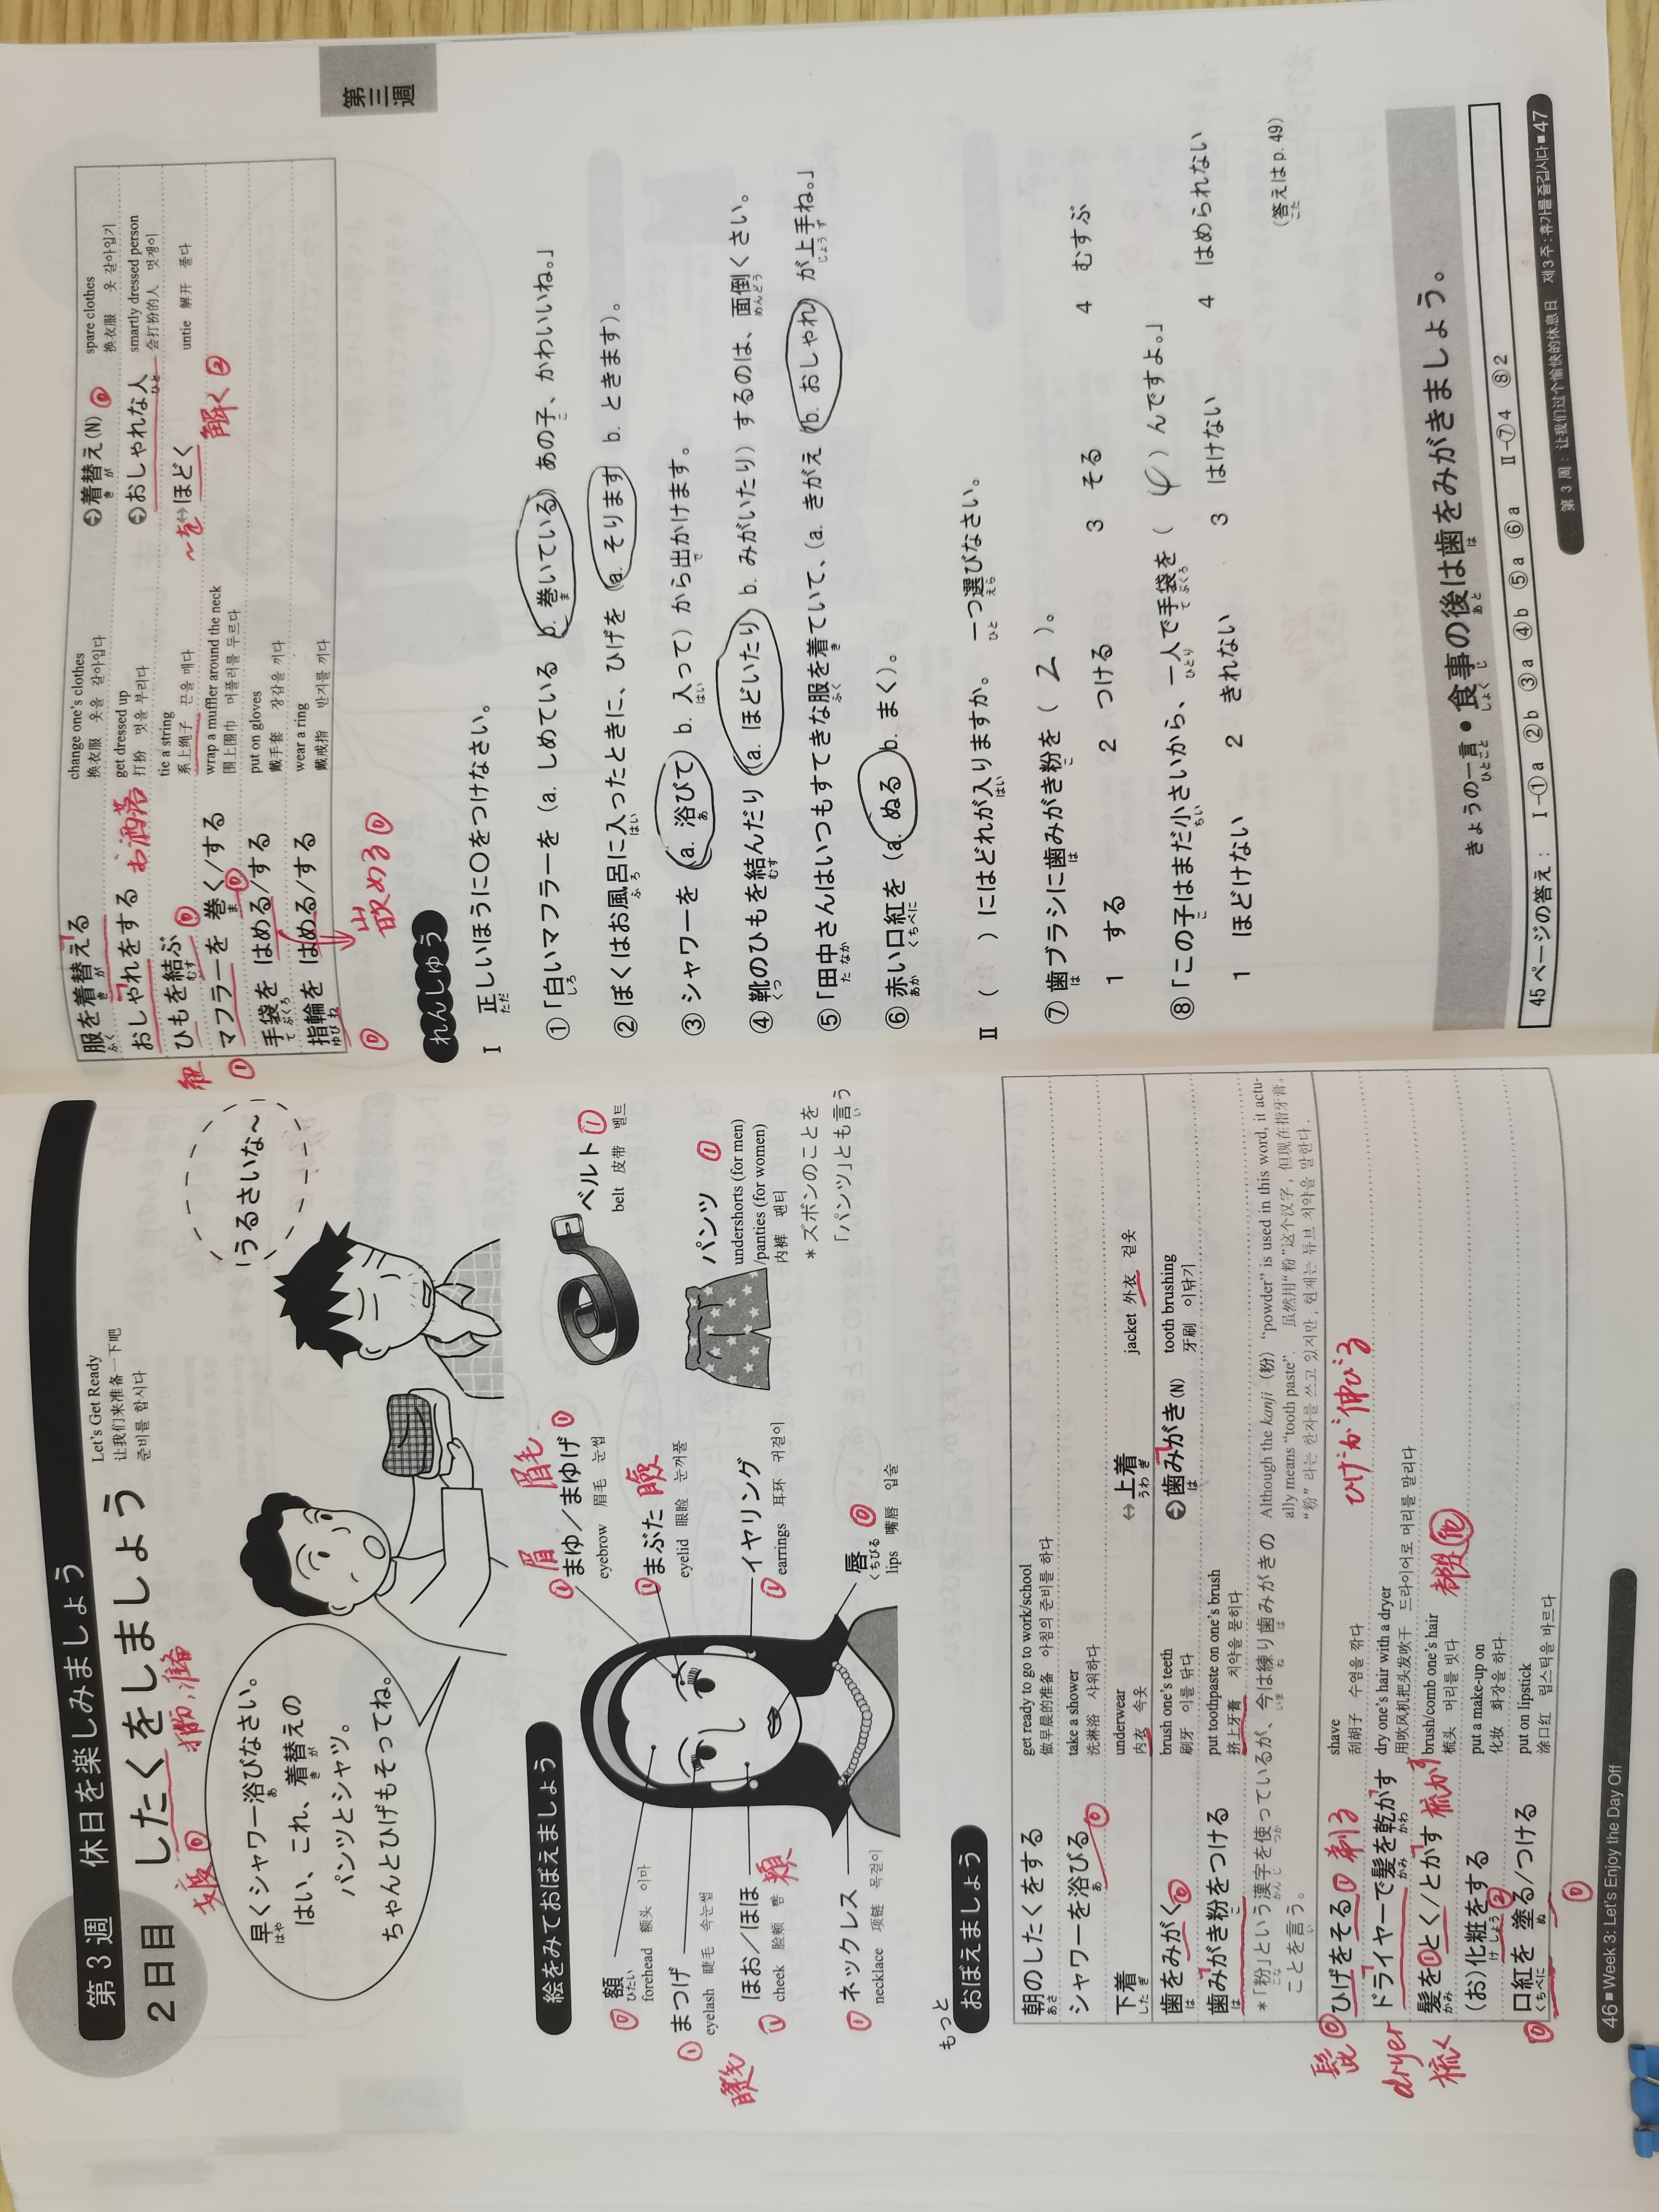 第3週 休日を楽しみましょう
2日目 したくをしましょう
支度⓪
Let's Get Ready
让我们来准备一下吧
준비를 합시다
早くシャワー浴びなさい。
はい、これ、着替えの
パンツとシャツ。
ちゃんとひげもそってね。
うるさいな～
絵をみておぼえましょう
⓪額
forehead 额头 이마
①まつげ
eyelash 睫毛 속눈썹
睫毛
①ほお／ほほ 頬
cheek 脸颊 뺨
①ネックレス
necklace 项链 목걸이
眉 眉毛
①まゆ／まゆげ①
eyebrow 眉毛 눈썹
①まぶた 瞼
eyelid 眼睑 눈꺼풀
①イヤリング
earrings 耳环 귀걸이
唇⓪
lips 嘴唇 입술
ベルト⓪
belt 皮带 벨트
パンツ ①
undershorts (for men)
/panties (for women)
内裤 팬티
＊ズボンのことを
「パンツ」とも言う
もっと
おぼえましょう
朝のしたくをする get ready to go to work/school
做早晨的准备 아침의 준비를 하다
シャワーを浴びる⓪ take a shower
洗淋浴 샤워하다
下着 underwear ⇔上着 jacket 外衣 겉옷
内衣 속옷
歯をみがく⓪ brush one's teeth ➔歯みがき(N) tooth brushing
刷牙 이를 닦다 牙刷 이닦기
歯みがき粉をつける put toothpaste on one's brush
挤上牙膏 치약을 묻히다
＊「粉」という漢字を使っているが、今は練り歯みがきの
ことを言う。
Although the kanji (粉) “powder” is used in this word, it actu-
ally means “tooth paste”. 虽然用“粉”这个汉字，但现在指牙膏。
“粉” 라는 한자를 쓰고 있지만, 현재는 튜브 치약을 말한다.
髭⓪ひげをそる① 剃る shave ひげが伸びる
刮胡子 수염을 깎다
dryer ドライヤーで髪を乾かす dry one's hair with a dryer
用吹风机把头发吹干 드라이어로 머리를 말리다
梳く 髪を①とく/とかす 梳かす brush/comb one's hair
梳头 머리를 빗다
(お)化粧をする② put a make-up on
化妆 화장을 하다
⓪口紅を 塗る/つける⓪ put on lipstick
涂口红 립스틱을 바르다
46■Week 3: Let's Enjoy the Day Off
第三週
服を着替える change one's clothes ➔着替え(N)⓪ spare clothes
换衣服 옷을 갈아입다 换衣服 옷 갈아입기
おしゃれをする お洒落 get dressed up ➔おしゃれな人 smartly dressed person
打扮 멋을 부리다 会打扮的人 멋쟁이
紐 ひもを結ぶ⓪ tie a string ～を⇔ほどく untie 解开 풀다
系上绳子 끈을 매다 解く②
①マフラーを 巻く⓪/する wrap a muffler around the neck
围上围巾 머플러를 두르다
手袋を はめる/する put on gloves
戴手套 장갑을 끼다
指輪を はめる/する wear a ring
戴戒指 반지를 끼다
⓪ 嵌める⓪
れんしゅう
Ⅰ 正しいほうに○をつけなさい。
①「白いマフラーを（a. しめている b. 巻いている）あの子、かわいいね。」
② ぼくはお風呂に入ったときに、ひげを（a. そります b. ときます）。
③ シャワーを（a. 浴びて b. 入って）から出かけます。
④ 靴のひもを結んだり（a. ほどいたり b. みがいたり）するのは、面倒くさい。
⑤「田中さんはいつもすてきな服を着ていて、（a. きがえ b. おしゃれ）が上手ね。」
⑥ 赤い口紅を（a. ぬる b. まく）。
Ⅱ （ ）にはどれが入りますか。 一つ選びなさい。
⑦ 歯ブラシに歯みがき粉を（ 2 ）。
1 する 2 つける 3 そる 4 むすぶ
⑧「この子はまだ小さいから、一人で手袋を（ 4 ）んですよ。」
1 ほどけない 2 きれない 3 はけない 4 はめられない
（答えは p. 49）
きょうの一言●食事の後は歯をみがきましょう。
45ページの答え： Ⅰ-①a ②b ③a ④b ⑤a ⑥a Ⅱ-⑦4 ⑧2
第 3 周：让我们过个愉快的休息日 제3주：휴가를 즐깁시다■47